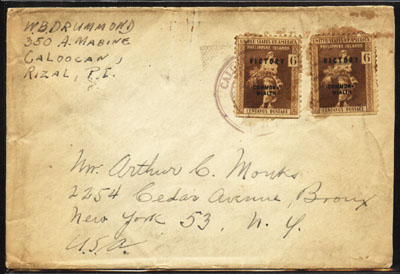 W.B. DRUMMOND
350 A. MABINE
CALOOCAN,
RIZAL, P.I.
UNITED STATES OF AMERICA
PHILIPPINE ISLANDS
VICTORY
6 6
COMMON-
WEALTH
CENTAVOS POSTAGE
UNITED STATES OF AMERICA
PHILIPPINE ISLANDS
VICTORY
6 6
COMMON-
WEALTH
CENTAVOS POSTAGE
Mr. Arthur C. Monks
2254 Cedar Avenue, Bronx
New York 53, N. Y.
U.S.A.